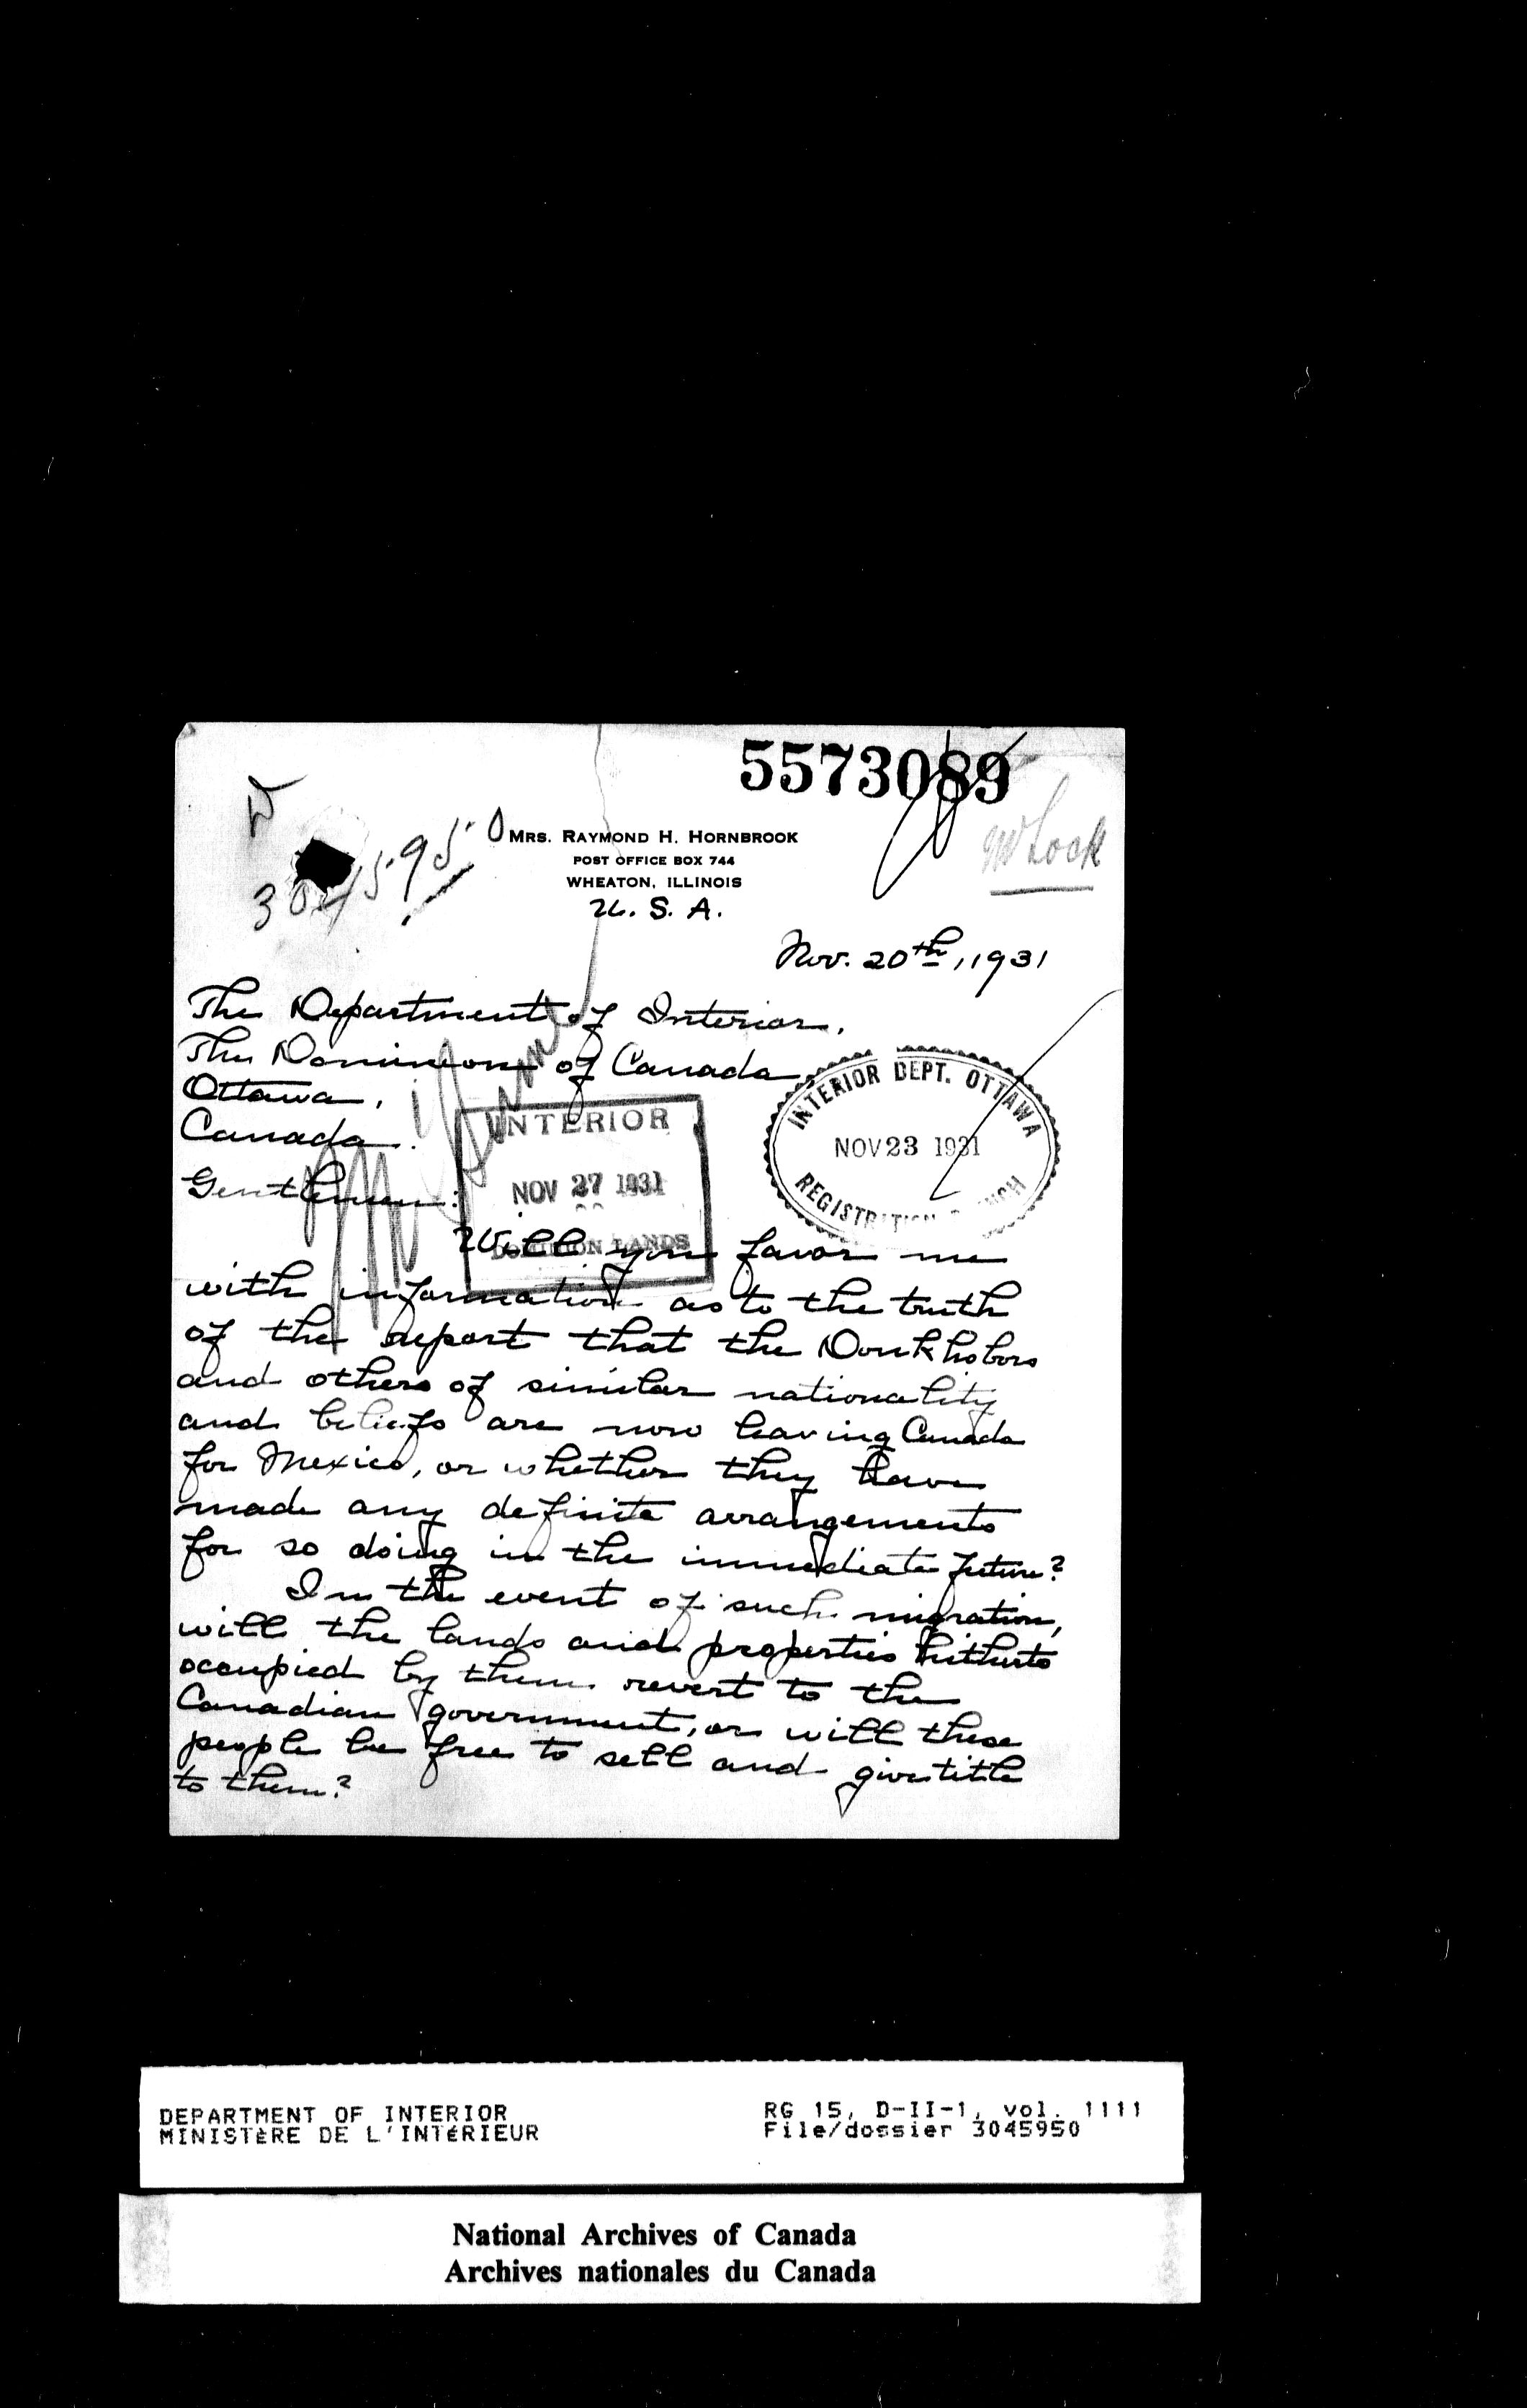 5573089
W Look
3045950
MRS. RAYMOND H. HORNBROOK
POST OFFICE BOX 744
WHEATON, ILLINOIS
U. S. A.
Nov. 20th, 1931
The Department of Interior,
The Dominion of Canada
Ottawa,
Canada.
INTERIOR DEPT. OTTAWA
NOV 23 1931
REGISTRATION
INTERIOR
NOV 27 1931
DOMINION LANDS
Gentlemen:
Will you favor me
with information as to the truth
of the report that the Doukhobors
and others of similar nationality
and beliefs are now leaving Canada
for Mexico, or whether they have
made any definite arrangements
for so doing in the immediate future?
In the event of such migration,
will the lands and properties hitherto
occupied by them revert to the
Canadian government, or will these
people be free to sell and give title
to them?
DEPARTMENT OF INTERIOR
MINISTÈRE DE L'INTÉRIEUR
RG 15, D-II-1, vol. 1111
File/dossier 3045950
National Archives of Canada
Archives nationales du Canada